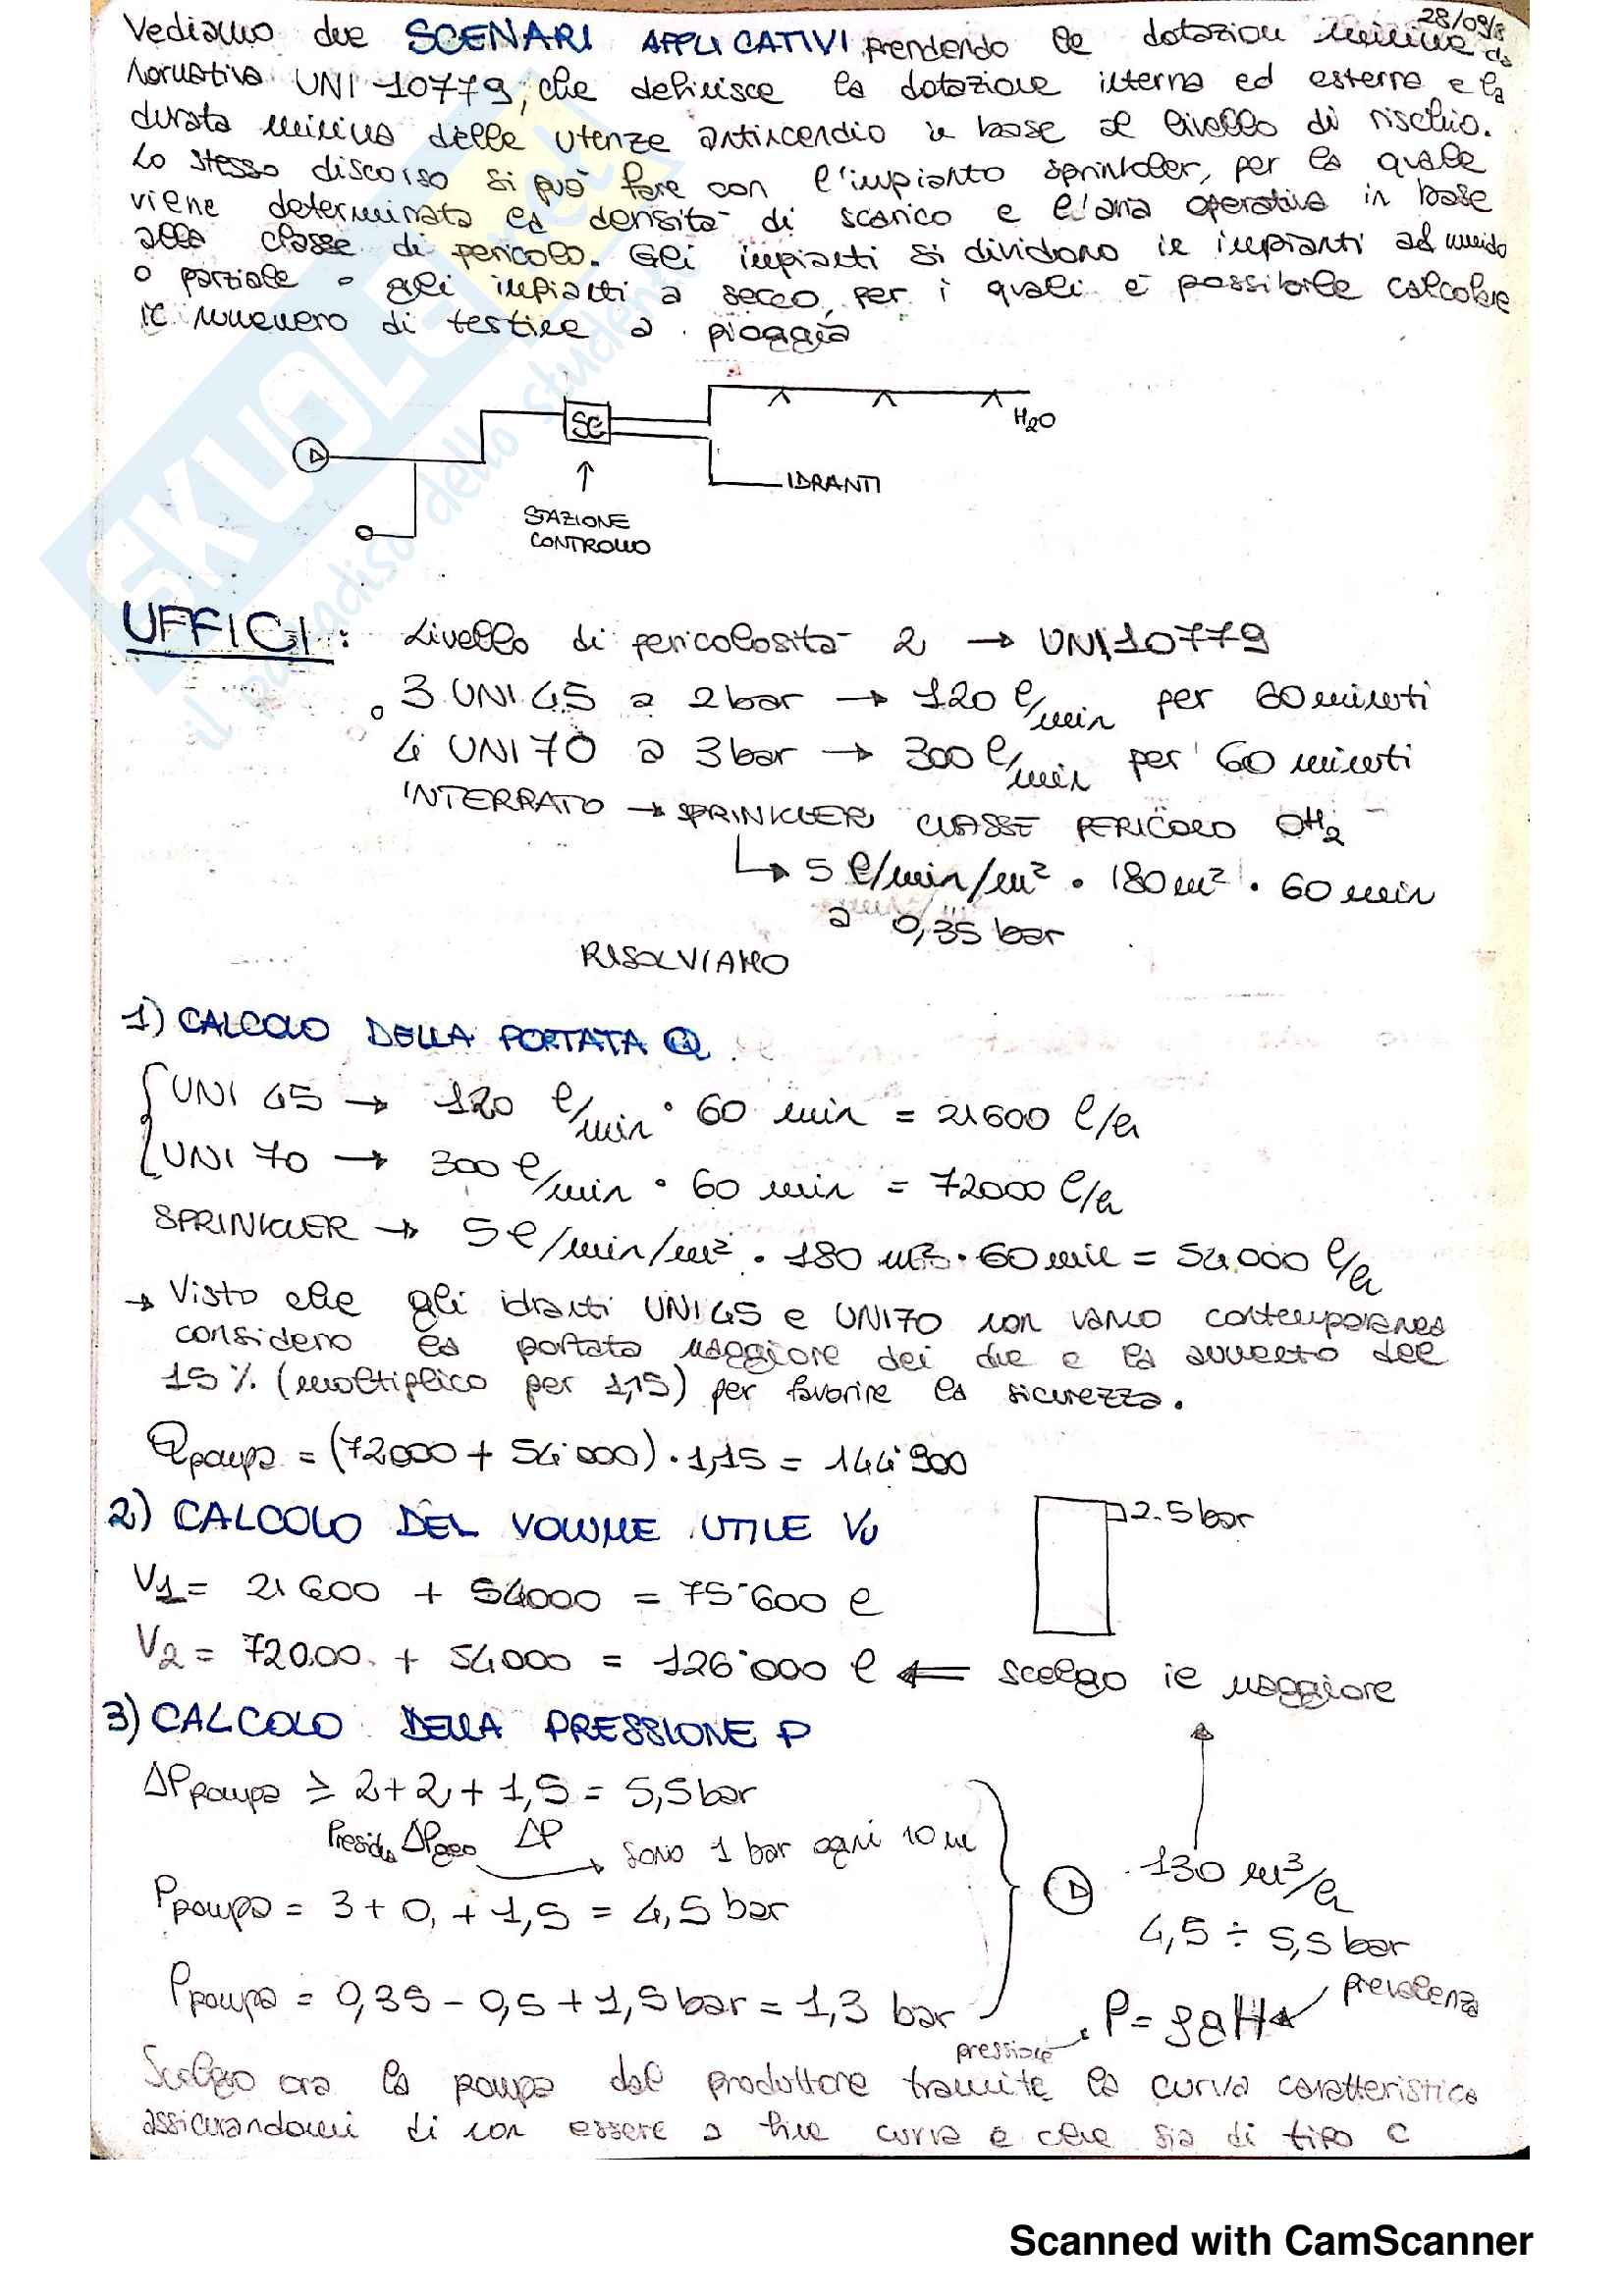 28/09/8
Vediamo due SCENARI APPLICATIVI prendendo le dotazioni minime da
Normativa UNI 10779, che definisce la dotazione interna ed esterna e la
durata minima delle utenze antincendio in base al livello di rischio.
Lo stesso discorso si può fare con l'impianto sprinkler, per la quale
viene determinata la densità di scarico e l'aria operativa in base
alla classe di pericolo. Gli impianti si dividono in impianti ad umido
o parziale o gli impianti a secco, per i quali è possibile calcolare
il numero di testine a pioggia
SC
H2O
IDRANTI
STAZIONE
CONTROLLO
UFFICI: Livello di pericolosità 2 → UNI 10779
3 UNI 45 a 2 bar → 120 l/min per 60 minuti
4 UNI 70 a 3 bar → 300 l/min per 60 minuti
INTERRATO → SPRINKLER CLASSE PERICOLO OH2
↳ 5 l/min/m² · 180 m² · 60 min
a 0,35 bar
RISOLVIAMO
1) CALCOLO DELLA PORTATA Q
UNI 45 → 120 l/min · 60 min = 21600 l/h
UNI 70 → 300 l/min · 60 min = 72000 l/h
SPRINKLER → 5 l/min/m² · 180 m² · 60 min = 54.000 l/h
→ Visto che gli idranti UNI45 e UNI70 non vanno contemporanea
considero la portata maggiore dei due e la aumento del
15% (moltiplico per 1,15) per favorire la sicurezza.
Qpompa = (72000 + 54'000) · 1,15 = 144'900
2) CALCOLO DEL VOLUME UTILE Vu
2.5 bar
V1 = 21600 + 54000 = 75'600 l
V2 = 72000 + 54000 = 126'000 l ⟸ scelgo il maggiore
3) CALCOLO DELLA PRESSIONE P
ΔPpompa ≥ 2 + 2 + 1,5 = 5,5 bar
Presidio ΔPgeo ΔP → sono 1 bar ogni 10 m
130 m³/h
Ppompa = 3 + 0 + 1,5 = 4,5 bar
4,5 ÷ 5,5 bar
Ppompa = 0,35 - 0,5 + 1,5 bar = 1,3 bar
P = ρgH ← prevalenza
pressione
Scelgo ora la pompa dal produttore tramite la curva caratteristica
assicurandomi di non essere a fine curva e che sia di tipo C
SKUOLA.net
il paradiso dello studente
Scanned with CamScanner